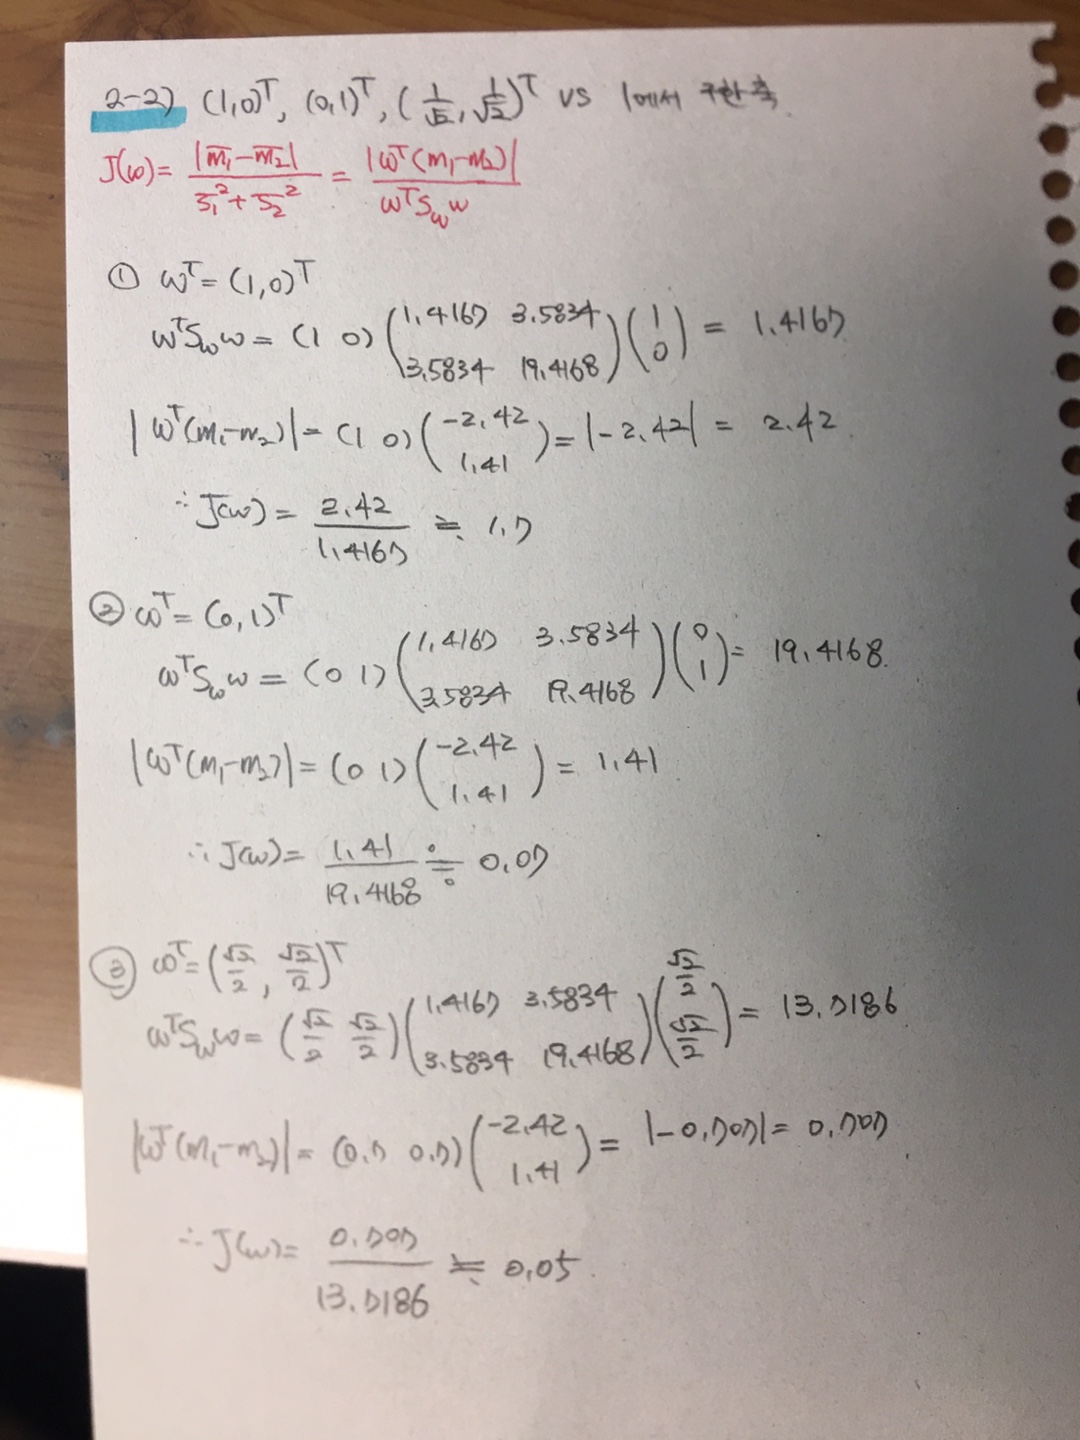 2-2) (1,0)ᵀ, (0,1)ᵀ, (1/√2, 1/√2)ᵀ vs 1에서 구한 축
J(ω) = |m̅₁-m̅₂| / (s̅₁²+s̅₂²) = |ωᵀ(m₁-m₂)| / ωᵀS_ωω
① ωᵀ= (1,0)ᵀ
ωᵀS_ωω = (1 0) (1.4167 3.5834 / 3.5834 19.4168) (1 / 0) = 1.4167
|ωᵀ(m₁-m₂)| = (1 0) (-2.42 / 1.41) = |-2.42| = 2.42
∴ J(ω) = 2.42 / 1.4167 ≒ 1.7
② ωᵀ= (0,1)ᵀ
ωᵀS_ωω = (0 1) (1.4167 3.5834 / 3.5834 19.4168) (0 / 1) = 19.4168
|ωᵀ(m₁-m₂)| = (0 1) (-2.42 / 1.41) = 1.41
∴ J(ω) = 1.41 / 19.4168 ≒ 0.07
③ ωᵀ= (√2/2, √2/2)ᵀ
ωᵀS_ωω = (√2/2 √2/2) (1.4167 3.5834 / 3.5834 19.4168) (√2/2 / √2/2) = 13.7186
|ωᵀ(m₁-m₂)| = (0.7 0.7) (-2.42 / 1.41) = |-0.707| = 0.707
∴ J(ω) = 0.707 / 13.7186 ≒ 0.05